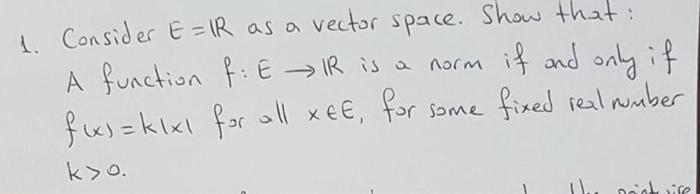 1. Consider E = ℝ as a vector space. Show that:
A function f: E → ℝ is a norm if and only if
f(x) = k|x| for all x ∈ E, for some fixed real number
k > 0.